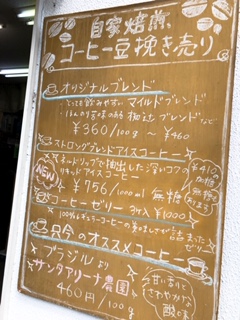 自家焙煎
コーヒー豆挽き売り
オリジナルブレンド
とっても飲みやすい マイルドブレンド
ほんのり苦味の 極辺ブレンド など
¥360/100g 〜 ¥460
ストロングブレンドアイスコーヒー
ネルドリップで抽出した 深いコクの
リキッドアイスコーヒー
NEW
¥756/1000ml 無糖
¥410
加糖
無糖
あります
コーヒーゼリー 3ケ入 ¥1000
100% レギュラーコーヒーの美味しさが詰まった
ゼリー
只今のオススメコーヒー
ブラジル より
サンタアリーナ農園
460円/100g
甘い香りと
さわやかな
酸味